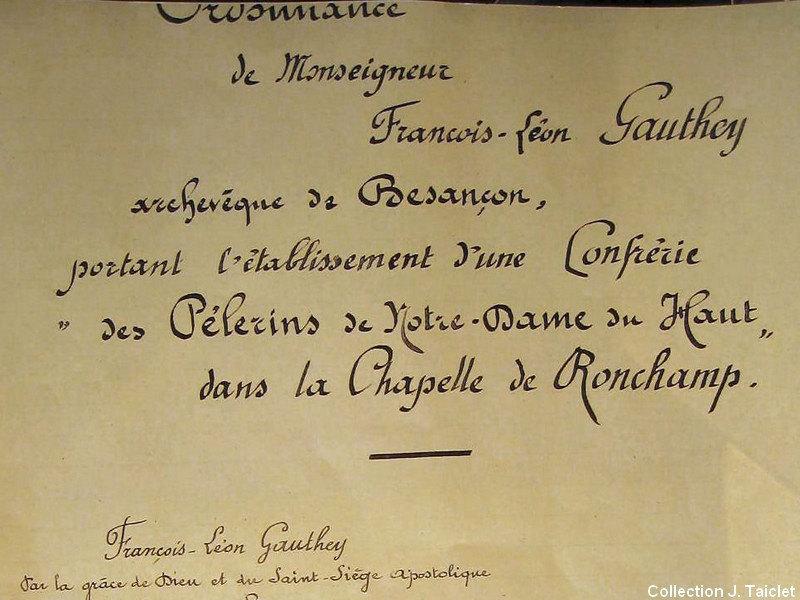 Ordonnance
de Monseigneur
François-Léon Gauthey
archevêque de Besançon,
portant l'établissement d'une Confrérie
" des Pélerins de Notre-Dame du Haut "
dans la Chapelle de Ronchamp.
François-Léon Gauthey
Par la grâce de Dieu et du Saint-Siège Apostolique
Collection J. Taiclet